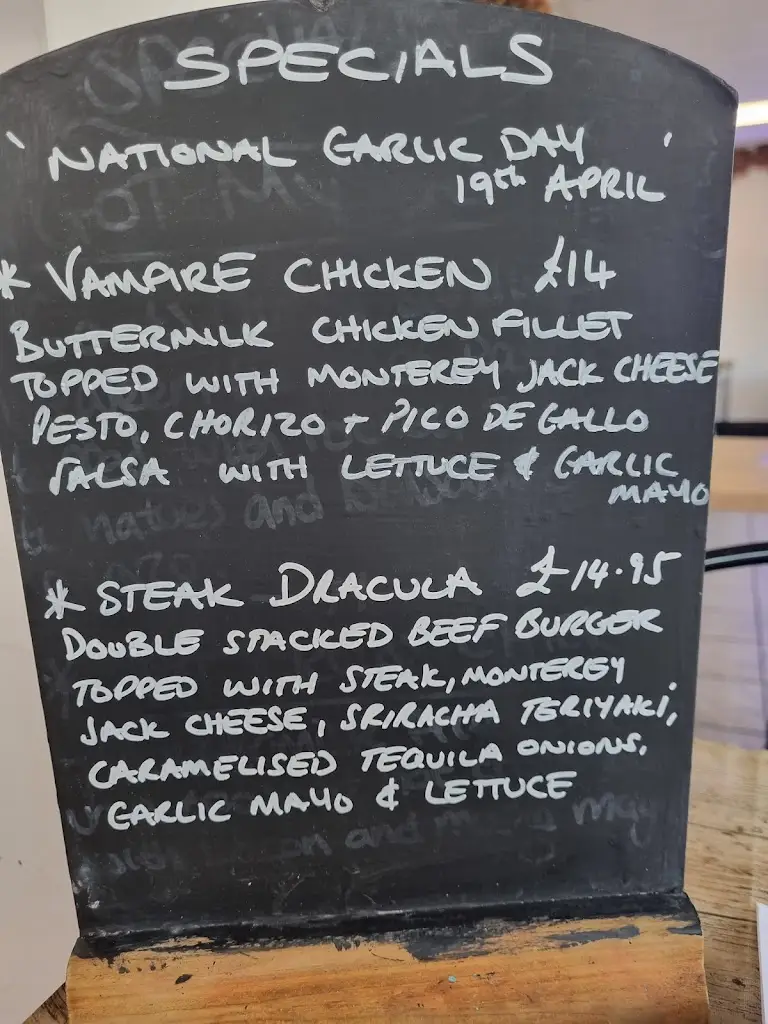 SPECIALS
'NATIONAL GARLIC DAY'
19th APRIL
* VAMPIRE CHICKEN £14
BUTTERMILK CHICKEN FILLET
TOPPED WITH MONTEREY JACK CHEESE
PESTO, CHORIZO + PICO DE GALLO
SALSA WITH LETTUCE & GARLIC
MAYO
* STEAK DRACULA £14.95
DOUBLE STACKED BEEF BURGER
TOPPED WITH STEAK, MONTEREY
JACK CHEESE, SRIRACHA TERIYAKI,
CARAMELISED TEQUILA ONIONS,
GARLIC MAYO & LETTUCE